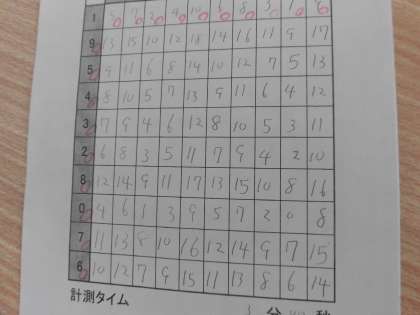 1 5 7 2 4 10 6 8 3 1 9
9 13 15 10 12 18 14 16 11 9 17
5 9 11 6 8 14 10 12 7 5 13
4 8 10 5 7 13 9 11 6 4 12
3 7 9 4 6 12 8 10 5 3 11
2 6 8 3 5 11 7 9 4 2 10
8 12 14 9 11 17 13 15 10 8 16
0 4 6 1 3 9 5 7 2 0 8
7 11 13 8 10 16 12 14 9 7 15
6 10 12 7 9 15 11 13 8 6 14
計測タイム 分 秒